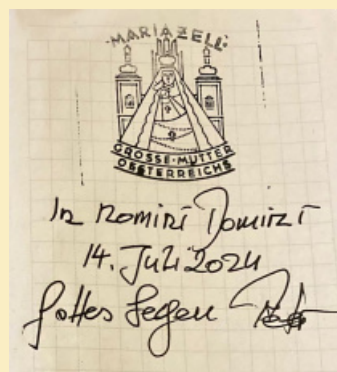 MARIAZELL
GROSSE·MUTTER
OESTERREICHS
In Nomini Domini
14. Juli 2024
Gottes Segen